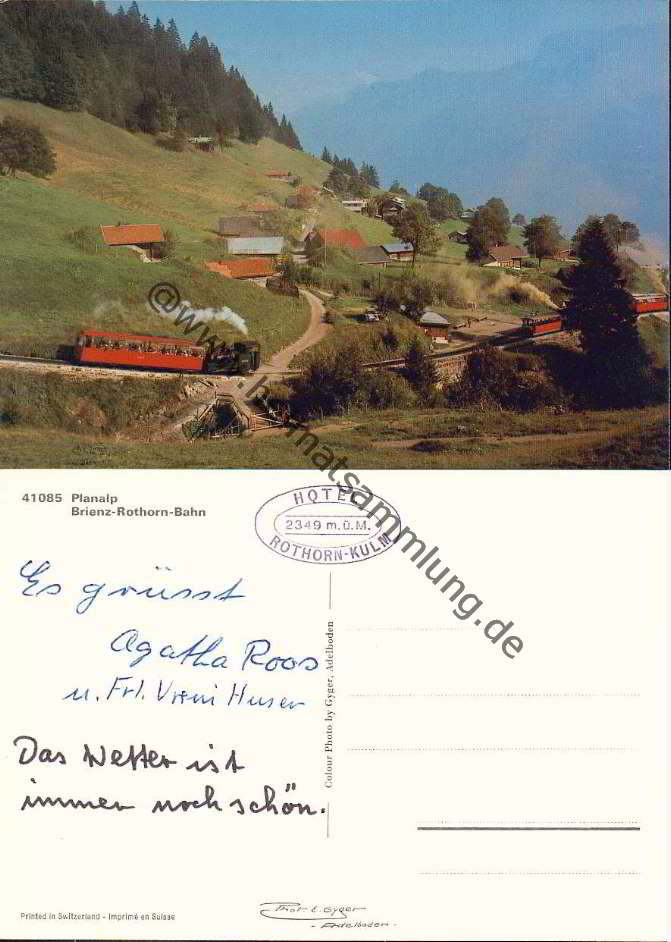 ©www.heimatsammlung.de
41085 Planalp
Brienz-Rothorn-Bahn
HOTEL
2349 m.ü.M.
ROTHORN-KULM
Es grüsst
Agatha Roos
u. Frl. Vreni Huser
Das Wetter ist
immer noch schön.
Colour Photo by Gyger, Adelboden
Printed in Switzerland - Imprimé en Suisse
Phot E. Gyger
- Adelboden -